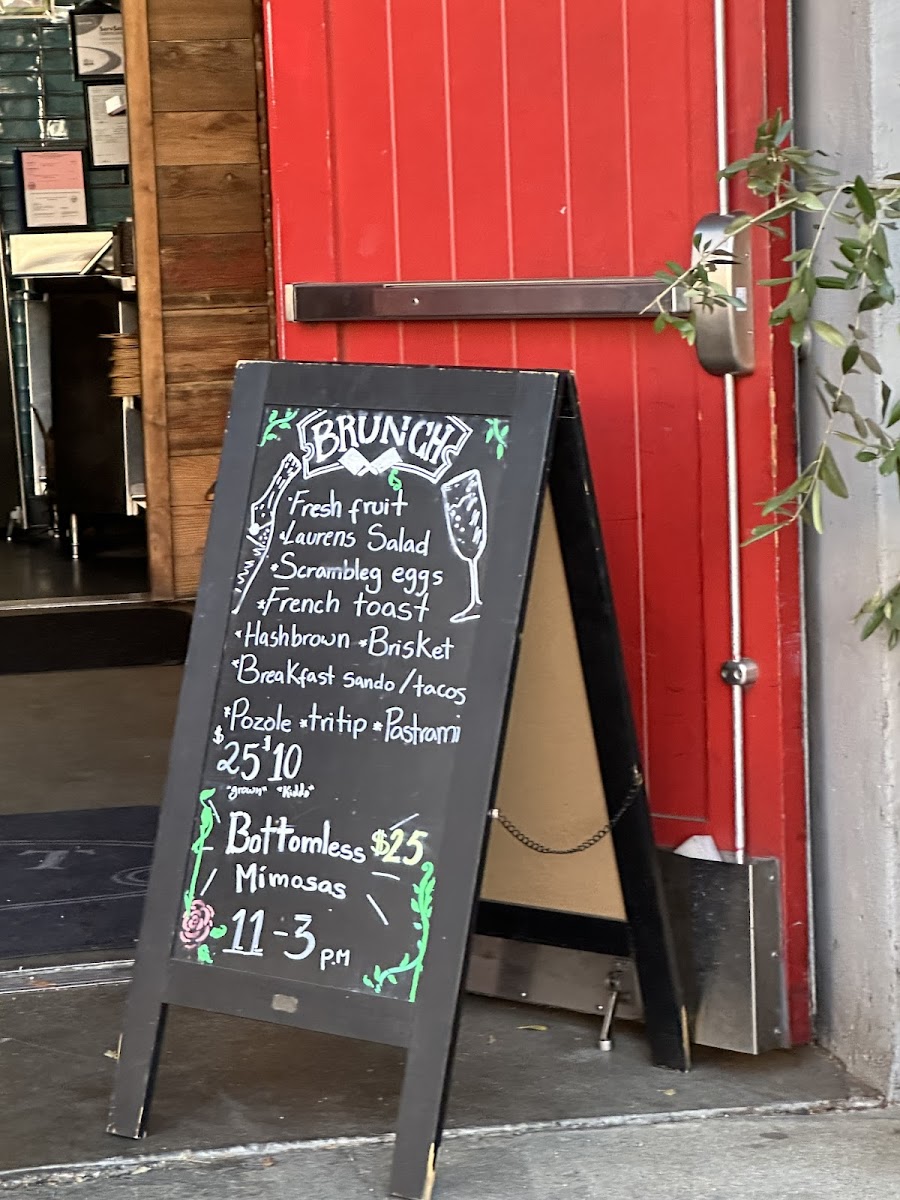 BRUNCH
*Fresh fruit
*Laurens Salad
*Scrambleg eggs
*French toast
*Hashbrown *Brisket
*Breakfast sando/tacos
*Pozole *tritip *Pastrami
$25 $10
"grown" "Kidds"
Bottomless $25
Mimosas
11-3 P.M